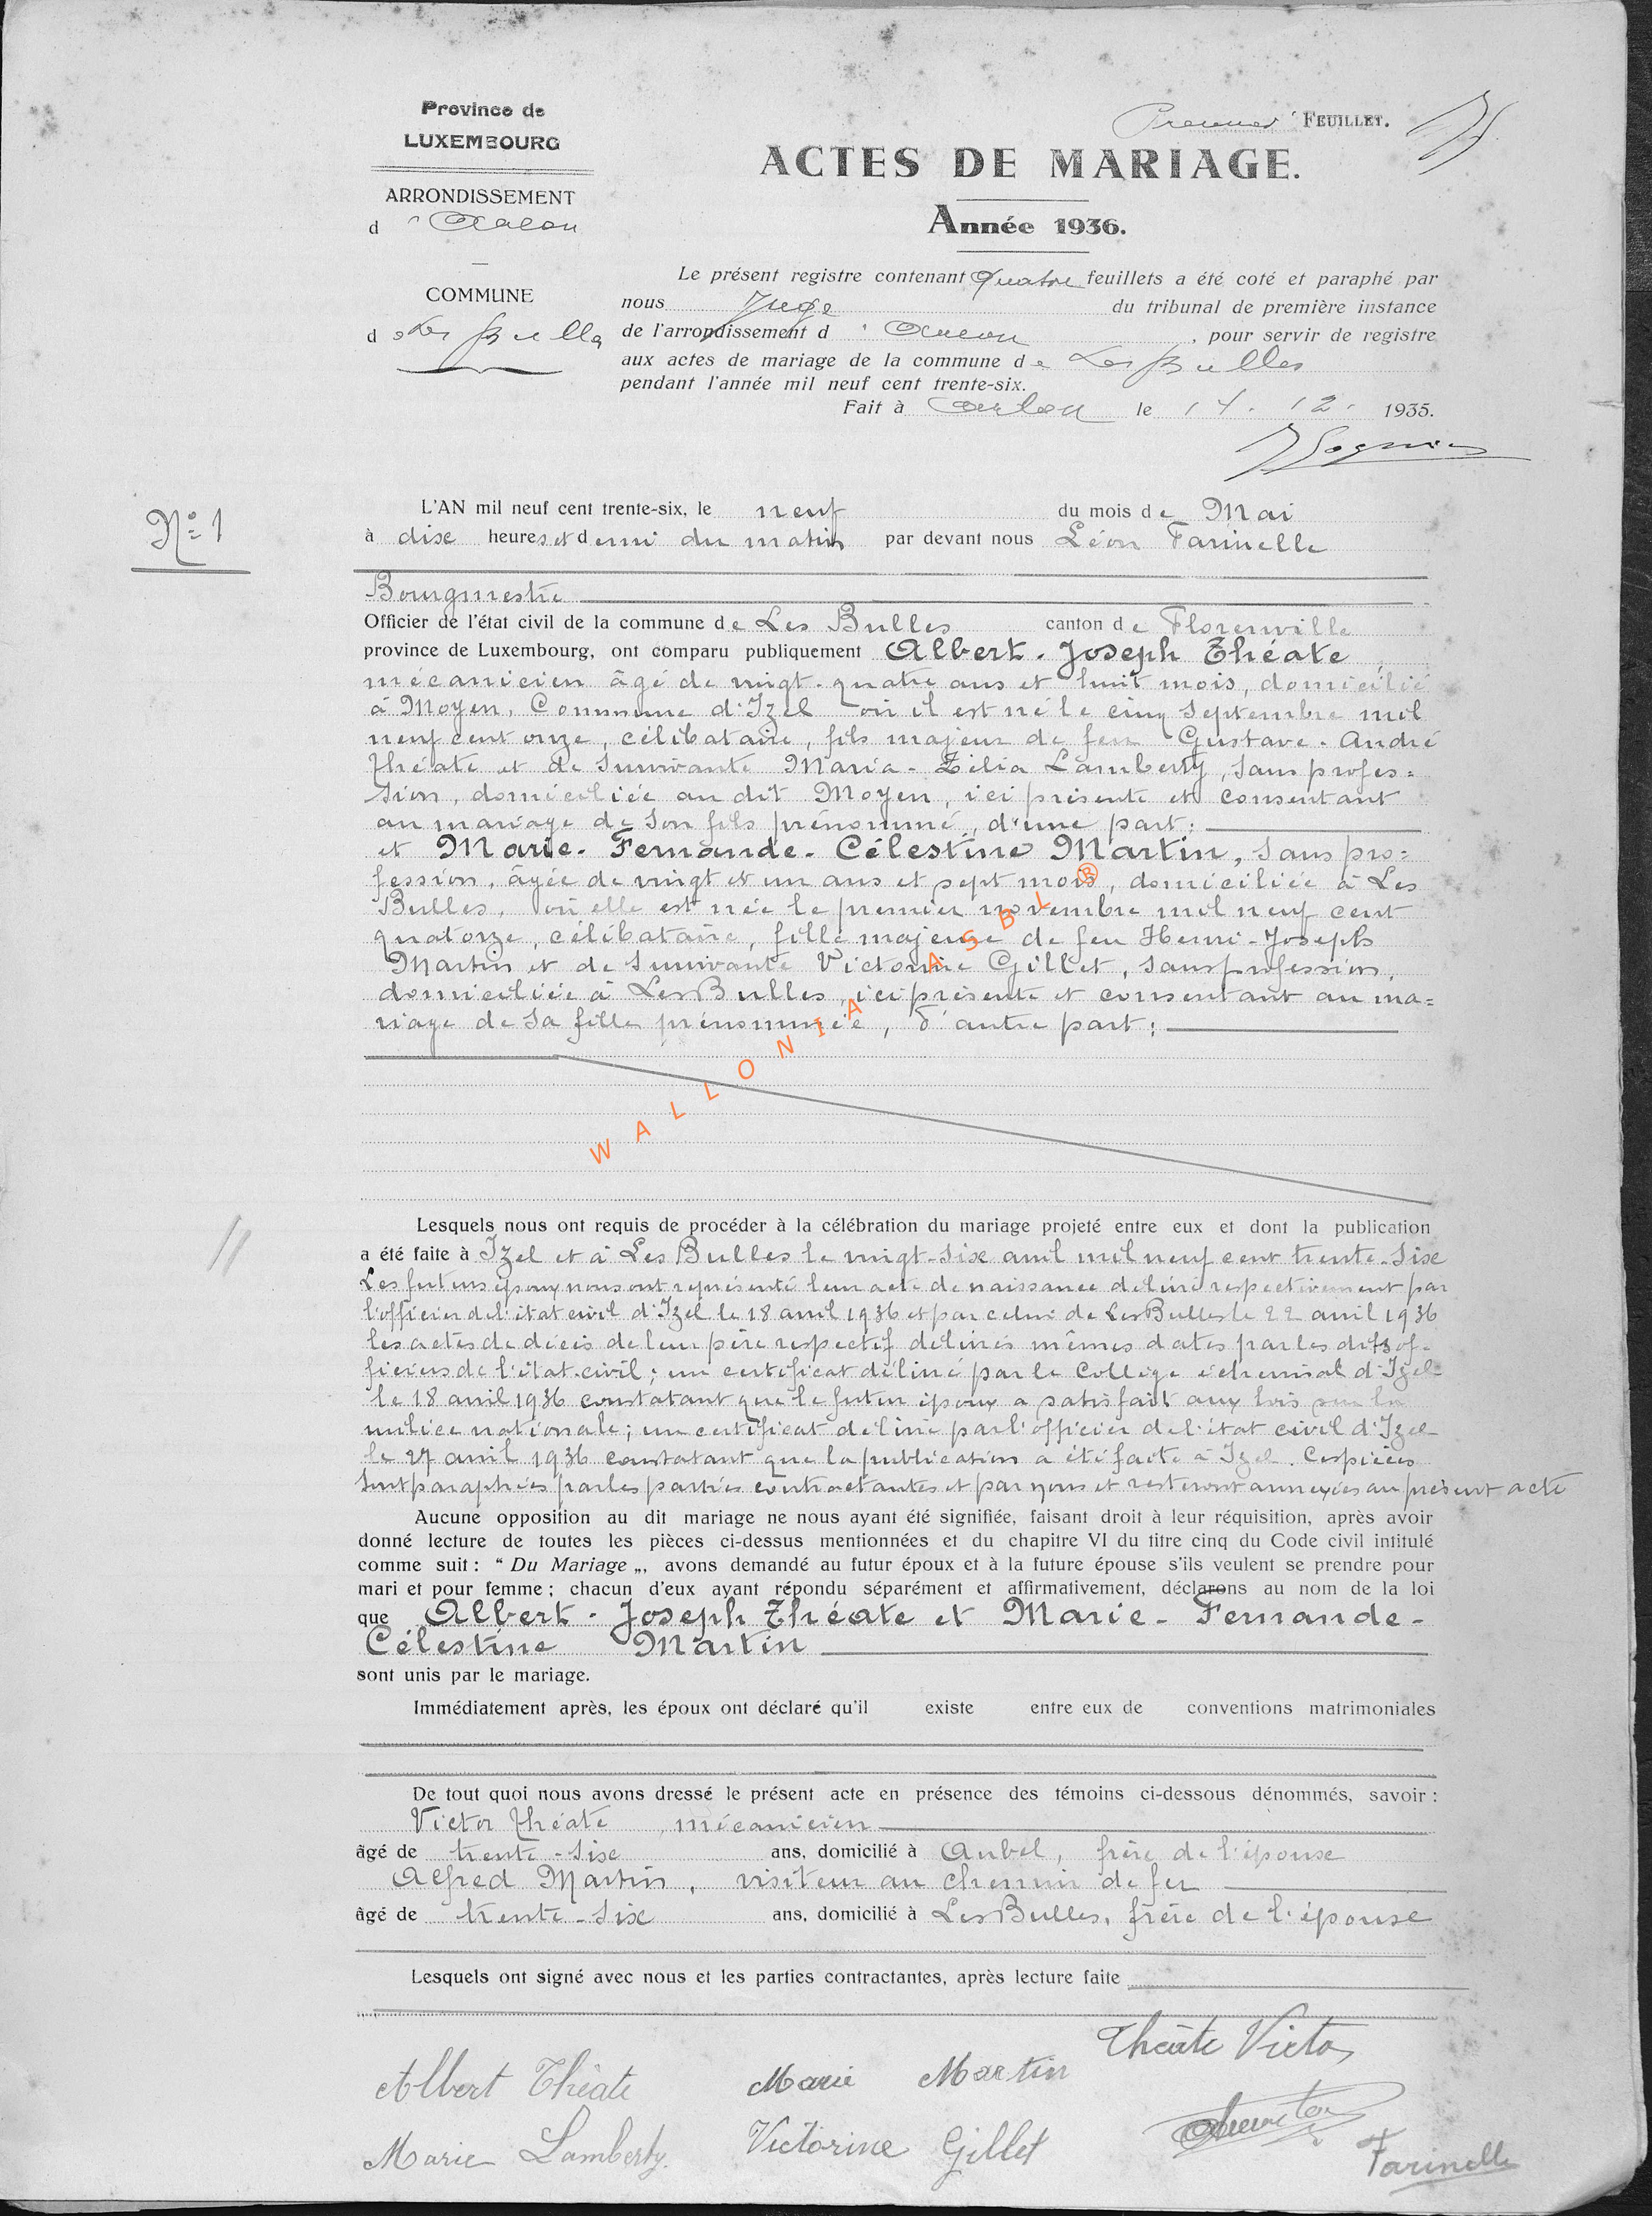 Province de
LUXEMBOURG
Premier FEUILLET.
ACTES DE MARIAGE.
ARRONDISSEMENT
d'Arlon
Année 1936.
COMMUNE
de Les Bulles
Le présent registre contenant quatre feuillets a été coté et paraphé par
nous Juge du tribunal de première instance
de l'arrondissement d'Arlon, pour servir de registre
aux actes de mariage de la commune de Les Bulles
pendant l'année mil neuf cent trente-six.
Fait à Arlon le 14. 12. 1935.
N° 1
L'AN mil neuf cent trente-six, le neuf du mois de Mai
à dix heures et demi du matin par devant nous Léon Farinelle
Bourgmestre
Officier de l'état civil de la commune de Les Bulles canton de Florenville
province de Luxembourg, ont comparu publiquement Albert-Joseph Théate,
mécanicien âgé de vingt-quatre ans et huit mois, domicilié
à Moyen, Commune d'Izel où il est né le cinq septembre mil
neuf cent onze, célibataire, fils majeur de feu Gustave-André
Théate et de survivante Maria-Zélia Lamberty, sans profes=
sion, domiciliée au dit Moyen, ici présente et consentant
au mariage de son fils prénommé, d'une part;
et Marie-Fernande-Célestine Martin, sans pro=
fession, âgée de vingt et un ans et sept mois, domiciliée à Les
Bulles, où elle est née le premier novembre mil neuf cent
quatorze, célibataire, fille majeure de feu Henri-Joseph
Martin et de survivante Victorine Gillet, sans profession,
domiciliée à Les Bulles, ici présente et consentant au ma=
riage de sa fille prénommée, d'autre part;
WALLONIA ASBL ®
Lesquels nous ont requis de procéder à la célébration du mariage projeté entre eux et dont la publication
a été faite à Izel et à Les Bulles le vingt-six avril mil neuf cent trente-six
Les futurs époux nous ont représenté leur acte de naissance délivré respectivement par
l'officier de l'état civil d'Izel le 18 avril 1936 et par celui de Les Bulles le 22 avril 1936
les actes de décès de leur père respectif délivrés mêmes dates par les dits of-
ficiers de l'état-civil; un certificat délivré par le Collège échevinal d'Izel
le 18 avril 1936 constatant que le futur époux a satisfait aux lois sur la
milice nationale; un certificat délivré par l'officier de l'état civil d'Izel
le 27 avril 1936 constatant que la publication a été faite à Izel. Ces pièces
sont paraphées par les parties contractantes et par nous et resteront annexées au présent acte
Aucune opposition au dit mariage ne nous ayant été signifiée, faisant droit à leur réquisition, après avoir
donné lecture de toutes les pièces ci-dessus mentionnées et du chapitre VI du titre cinq du Code civil intitulé
comme suit : “ Du Mariage „, avons demandé au futur époux et à la future épouse s'ils veulent se prendre pour
mari et pour femme ; chacun d'eux ayant répondu séparément et affirmativement, déclarons au nom de la loi
que Albert-Joseph Théate et Marie-Fernande-
Célestine Martin
sont unis par le mariage.
Immédiatement après, les époux ont déclaré qu'il existe entre eux de conventions matrimoniales
De tout quoi nous avons dressé le présent acte en présence des témoins ci-dessous dénommés, savoir :
Victor Théate, mécanicien
âgé de trente-six ans, domicilié à Aubel, frère de l'épouse
Alfred Martin, visiteur au chemin de fer
âgé de trente-six ans, domicilié à Les Bulles, frère de l'épouse
Lesquels ont signé avec nous et les parties contractantes, après lecture faite
Théate Victor
Albert Théate Marie Martin
Marie Lamberty. Victorine Gillet
Farinelle